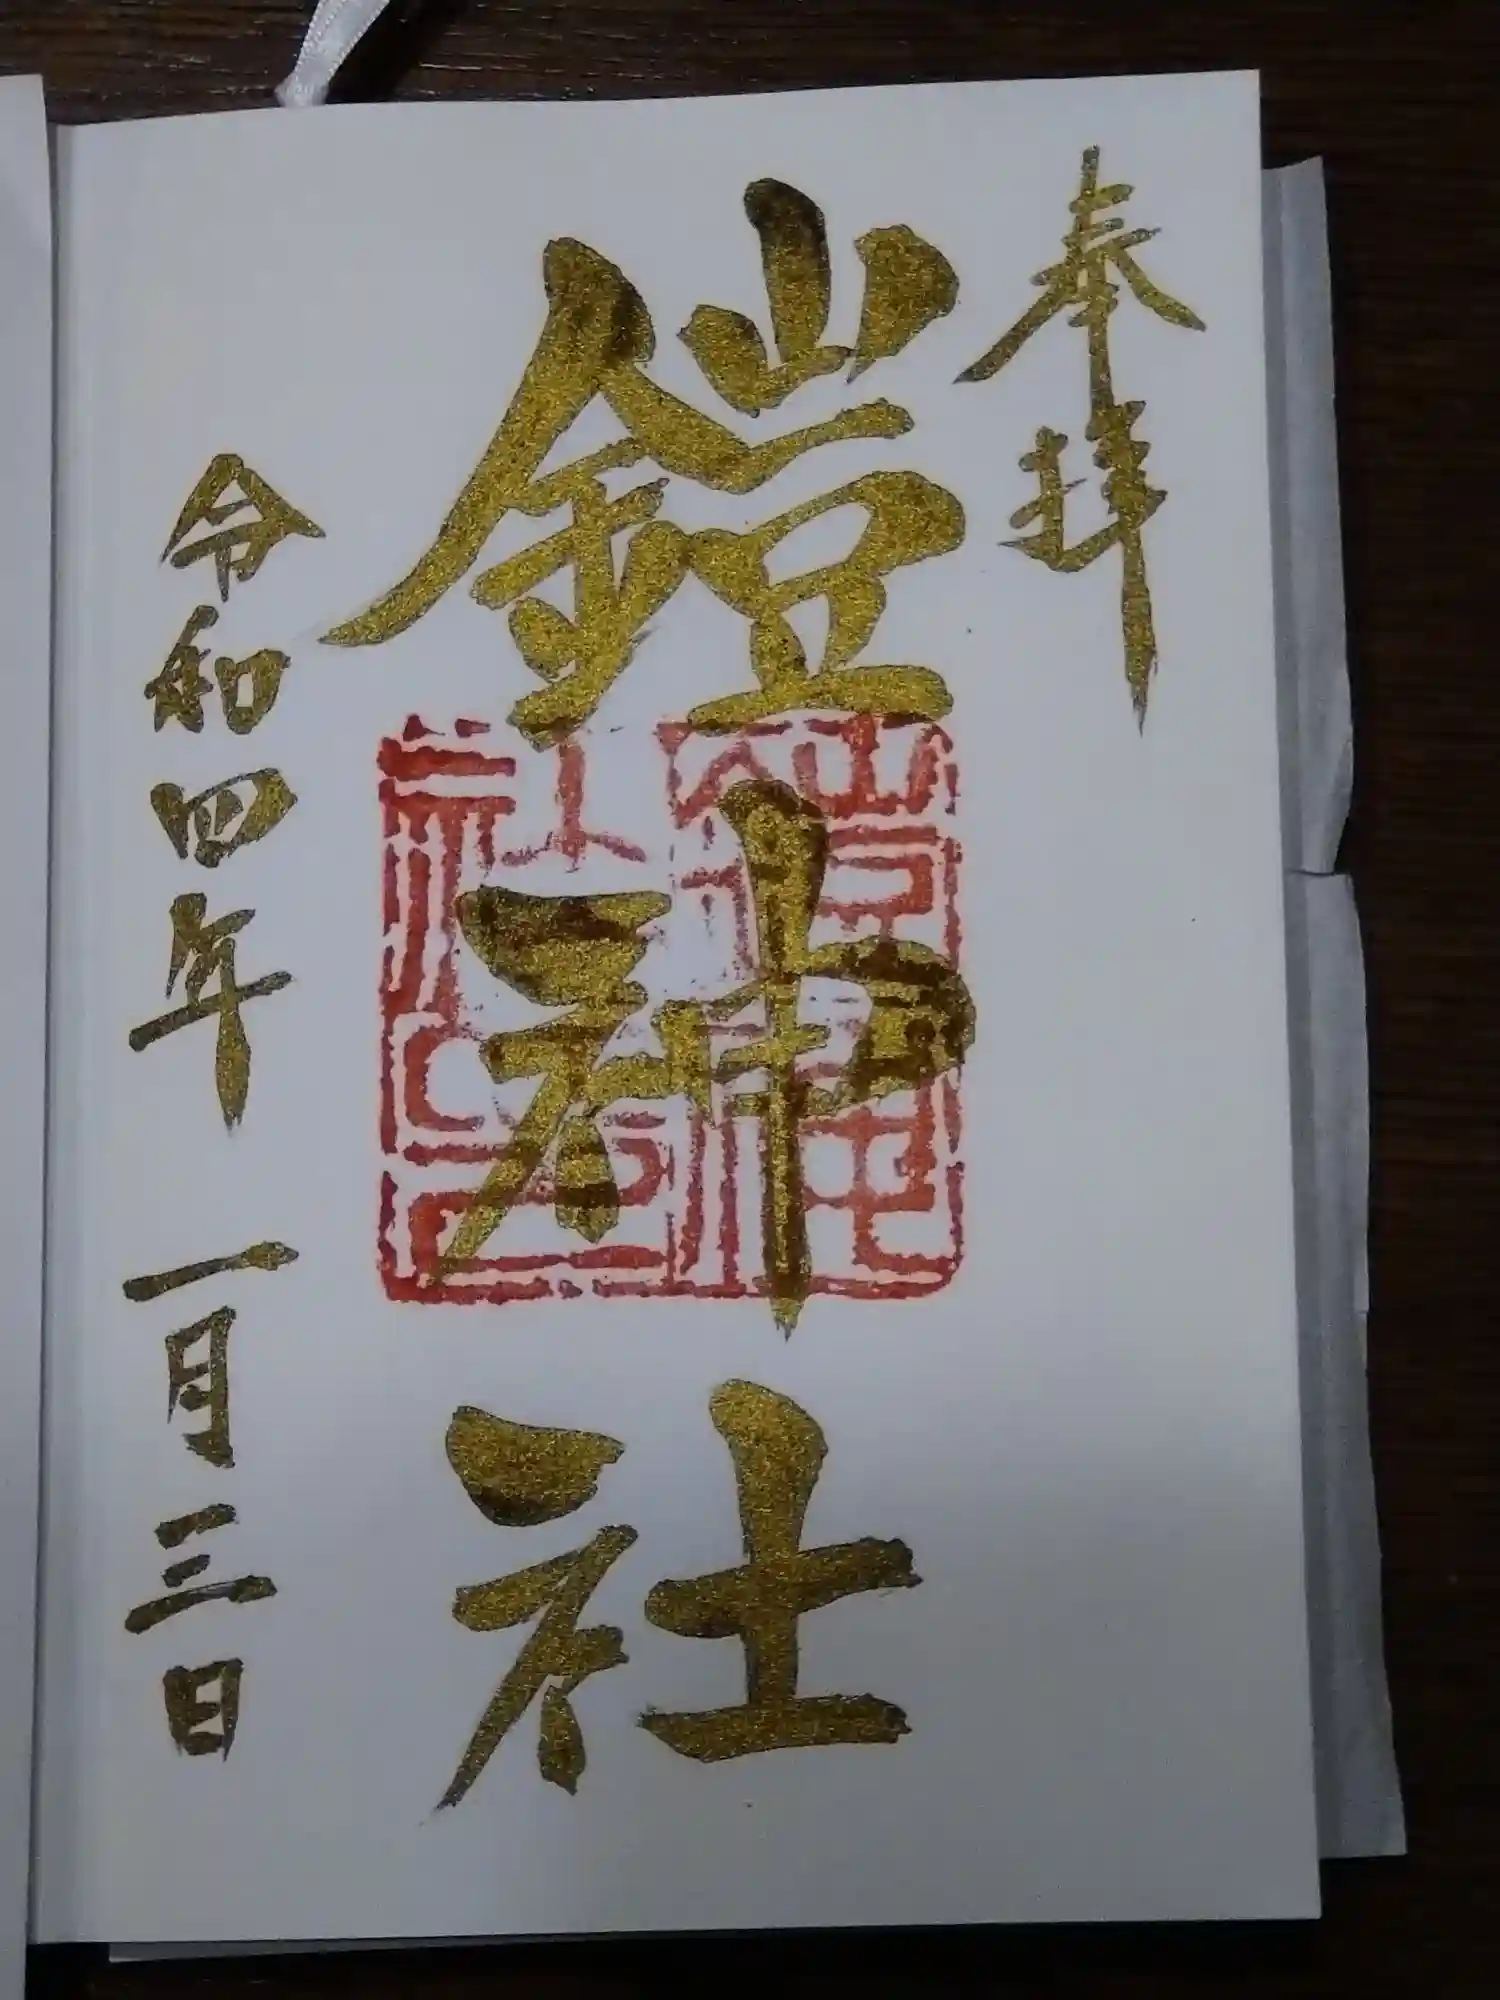 奉拝
鎧神社
令和四年一月三日